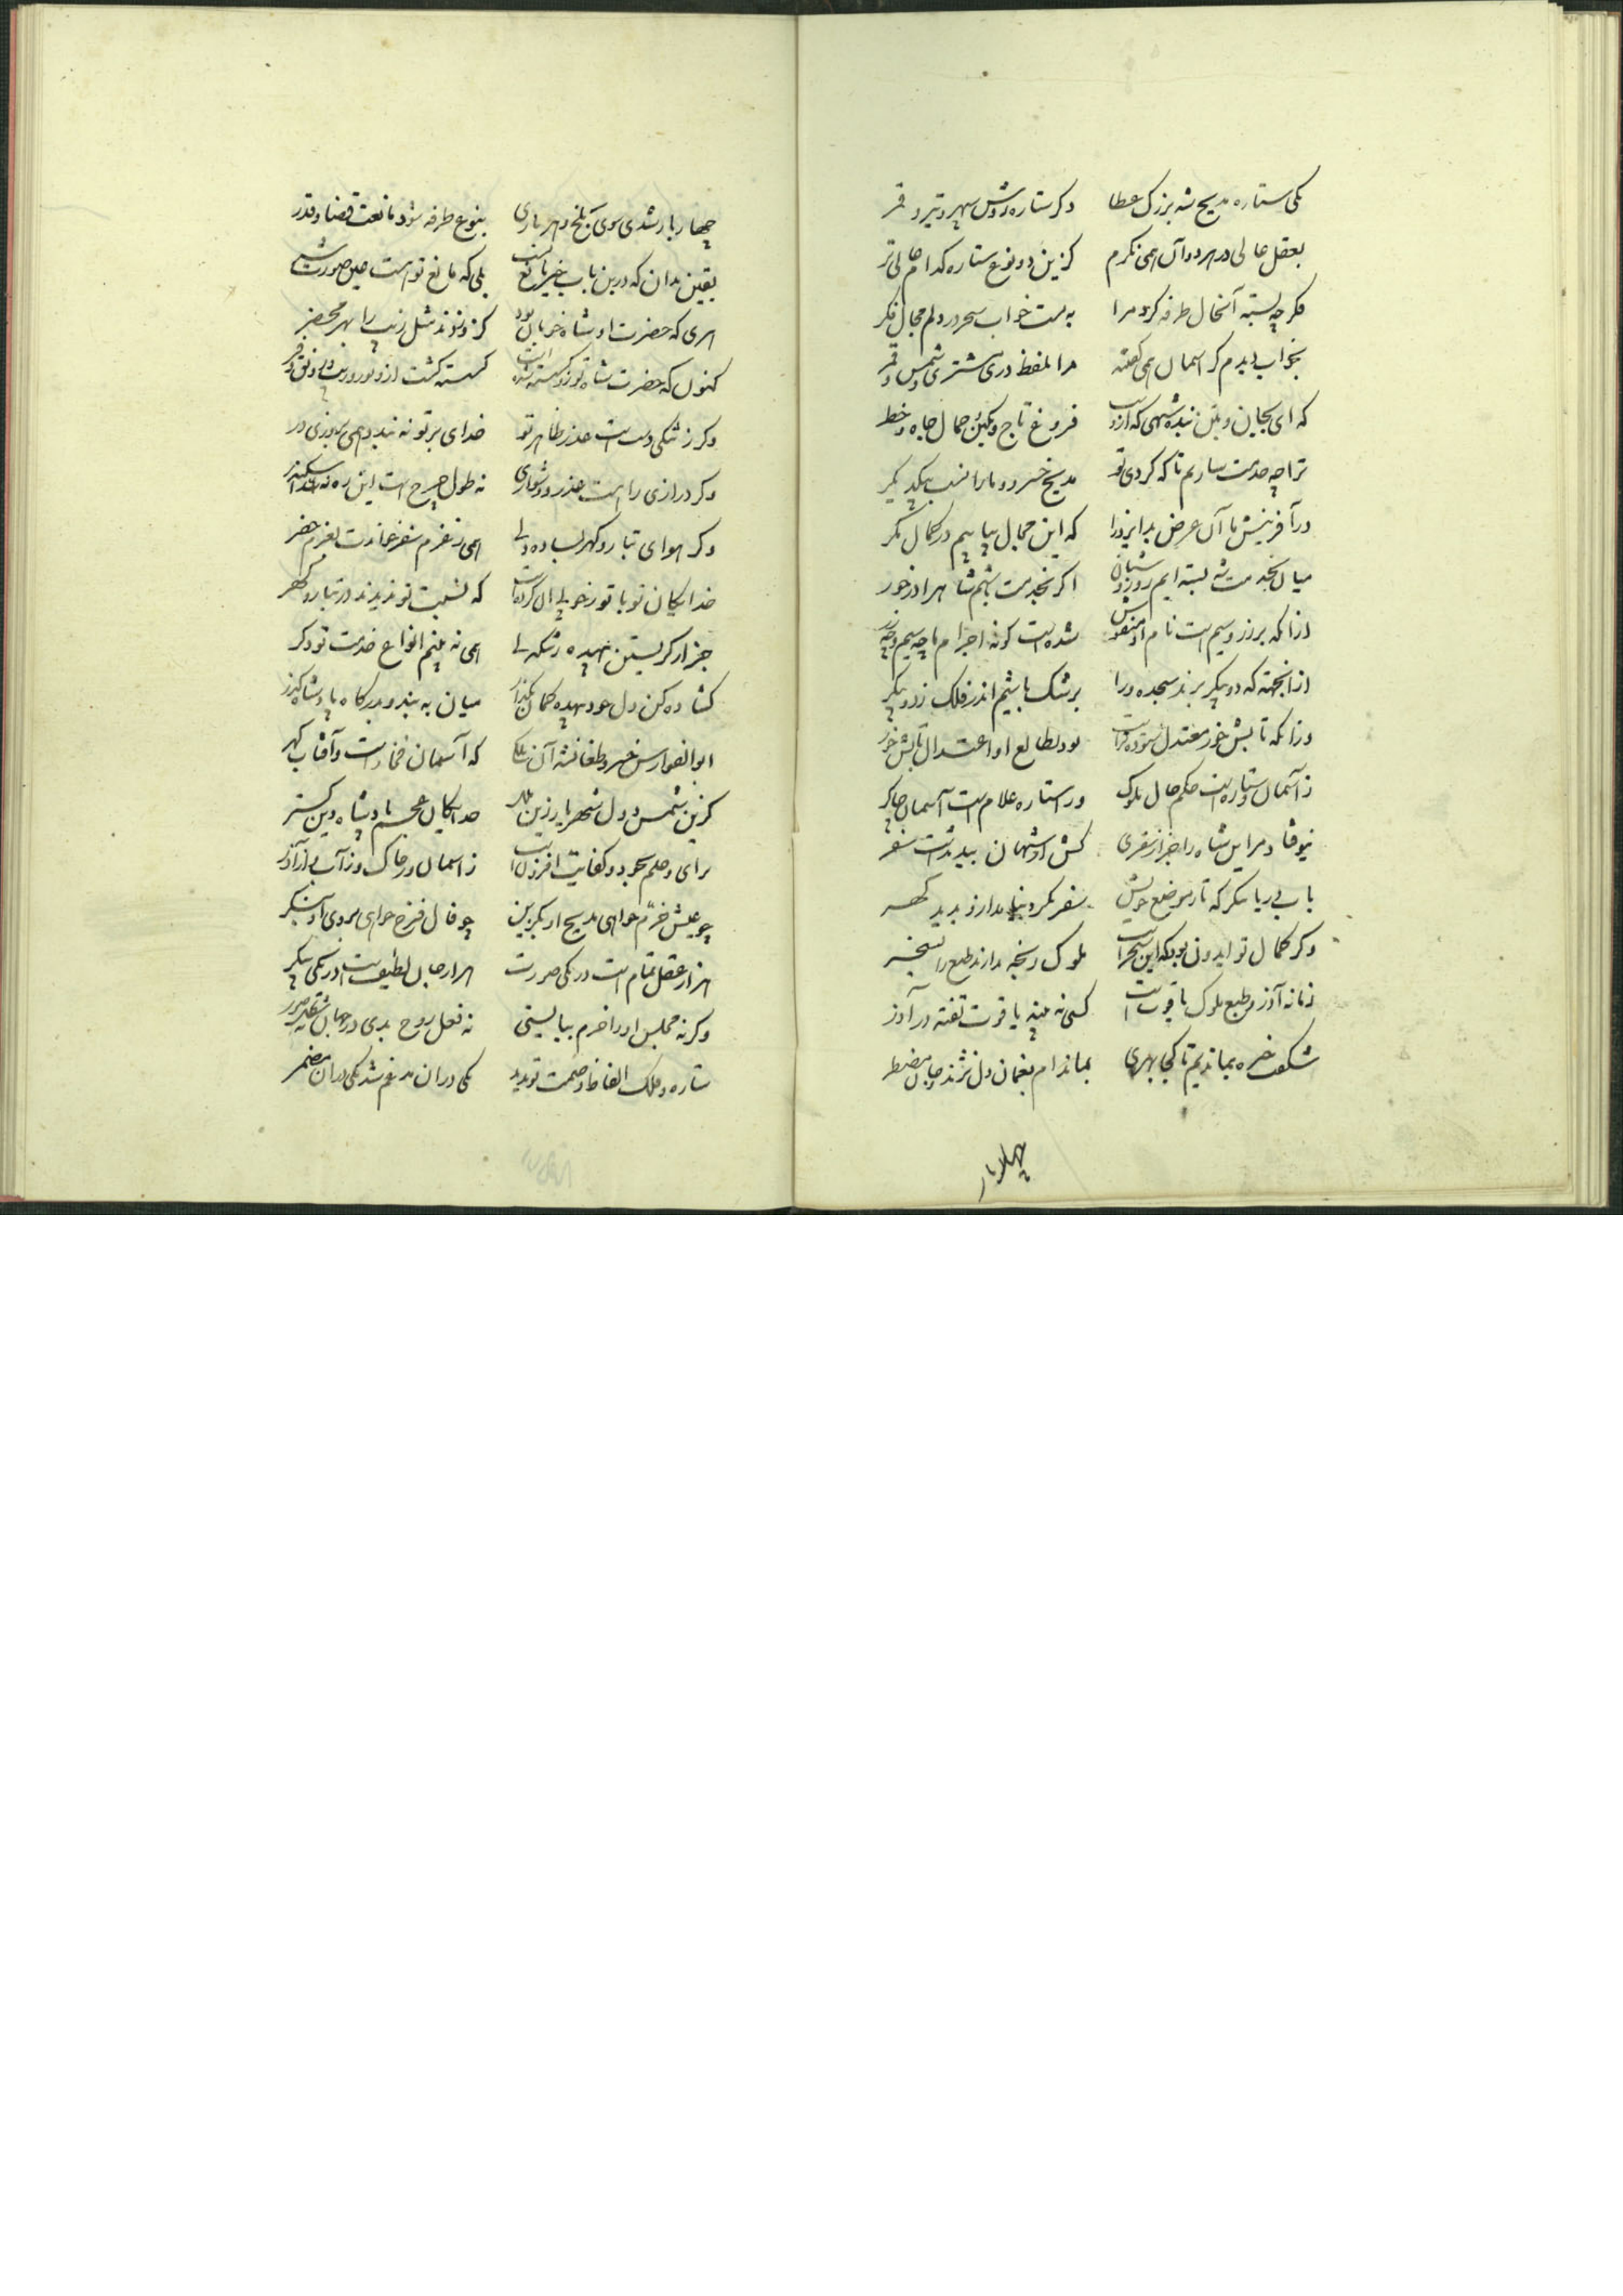 یکی ستاره مدیح شه بزرگ عطا دکر ستاره روش سپهر و تیر و قمر
بعقل عالی در هر دو آن همی نکرم کزین دو نوع ستاره کدام عالی تر
فکر چه بسته آنحال طرفه کرد مرا بدست خواب سحر در دلم مجال فکر
بخواب دیدم کز اسمان همی کفتند مرا بلفظ دری مشتری و شمس و قمر
که ای بجان و بتن بنده شهی که ازوست فروغ تاج و نکین و جمال جاه و خطر
ترا چه خدمت سازیم تا که کردی تو مدیح خسرو و مارا نسب بیکدیکر
در آفرینش ما آن عرض بد ایزد را که این جمال بیابیم در کمال نکر
میان بخدمت شه بسته ایم روز و شبان اکر بخدمت باشیم شاه را در خور
ازانکه بر زر و سیم است نام او منقوش شده است کونه اجرام ما چه سیم و چه زر
از انجهته که دو پیکر برند سجده ورا برشک باشیم اندر فلک ز دو پیکر
وزانکه تابش خور معتدل ستوده تراست بود بطالع او اعتدال تابش خور
ز آسمان و ستاره است حکم حال ملوک ورا ستاره غلام است آسمان چاکر
نیوفتاد مر این شاه را جز از سفری کش از شهان
بآب دریا بنکر که تا بموضع خویش سفر نکرد نیامد ازو پدید کهر
وکر کمال تو ایدون بود که این سحر است ملوک رنجه مدارند طبع را بسخر
زمانه آذر و طبع ملوک یاقوت است کسی نه بیند یاقوت تفته در آذر
شکفت خیره بماندیم تا کجا بهری بمانده ام بغمان دل نژند و جان مضطر
چهار بار
چهار بار شدی سوی بلخ و هر باری بنوع طرفه شود مانعت قضا و قدر
یقین بدان که درین باب خیر مانع تست بلی که مانع تو است عین صورت شر
هری که حضرت او شاه خوبان بود کز و زنند مثل زیب را بهر محضر
کنون که حضرت شاه تو زو کسسته شده است کسسته کشت ازو نور و زیب و رونق و فر
وکر ز تنکی دست است عذر ظاهر تو خدای بر تو نه بندد همی بروزی در
وکر درازی راهست عذر و دشواری نه طول چرخ است این ره نه سد اسکندر
وکر هوای تبار و کهر بسا ده دلی همی ز عزم سفر خواندت بعزم حضر
خدایکان تو با تو ز خوبی آن کرده است که نسبت تو ندیدند در تبار و کهر
جز از کریستن بیهده ز تنکدلی همی نه بینم انواع خدمت تو دکر
کشاده کن دل و بیهده کمان بکذار میان به بند و بدرکاه پادشا بکذر
ابو الفوارس خسرو طغانشه آن ملکی که آسمان فخارست و آفتاب کهر
کزین شمس دول شهریار زین ملل خدایکان عجم پادشاه دین کستر
برای و حلم و بجود و کفایت افزونست ز اسمان و ز خاک و ز آب و از آذر
چو عیش خرم خواهی مدیح او بکزین چو فال فرخ خواهی بروی او بنکر
هزار عقل تمام است در یکی صورت هزار جان لطیف است در یکی پیکر
وکر نه مجلس او را خرم ببایستی نه فعل روح بدی در جهان نه نقش صور
ستاره و ملک الفاظ و حکمت تو بدید یکی در ان مدغم شد یکی در ان مضمر